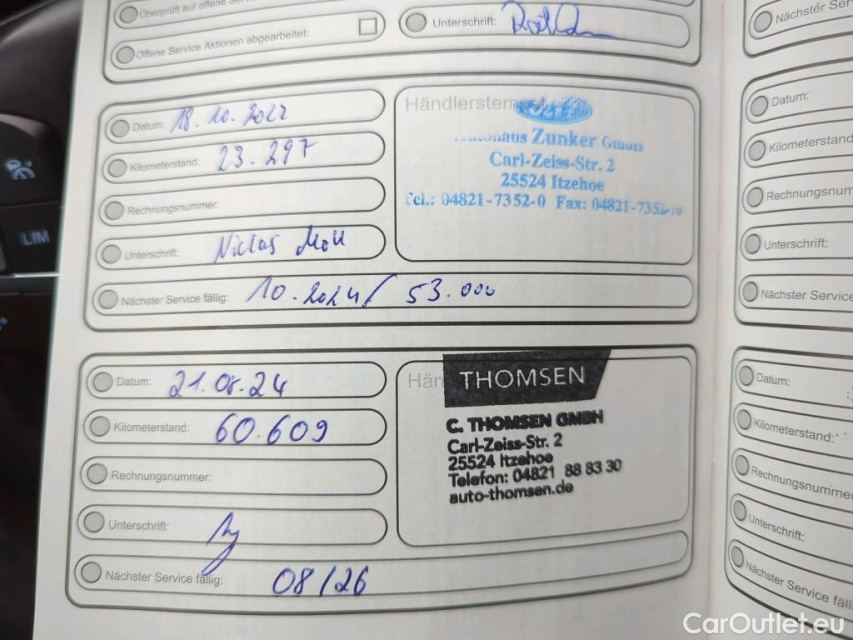 Überprüft auf offene
Offene Service Aktionen abgearbeitet:
Unterschrift:
Nächster Ser
Datum: 18.10.2022
Kilometerstand: 23.297
Rechnungsnummer:
Unterschrift: Niclas Moll
Nächster Service fällig: 10.2024/ 53.000
Händlerstem
Zunker GmbH
Carl-Zeiss-Str. 2
25524 Itzehoe
Tel.: 04821-7352-0 Fax: 04821-
Datum: 21.08.24
Kilometerstand: 60.609
Rechnungsnummer:
Unterschrift:
Nächster Service fällig: 08/26
Hän
THOMSEN
C. THOMSEN GMBH
Carl-Zeiss-Str. 2
25524 Itzehoe
Telefon: 04821 88 83 30
auto-thomsen.de
Datum:
Kilometerstand
Rechnungsnum
Unterschrift:
Nächster Service
Datum:
Kilometerstand:
Rechnungsnumme
Unterschrift:
Nächster Service fäll
LIM
CarOutlet.eu